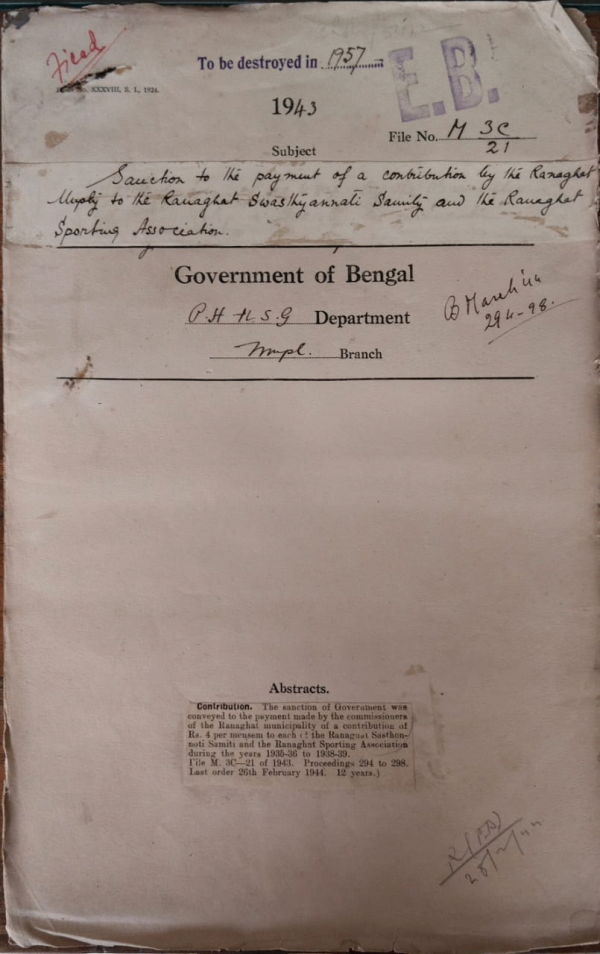 Fixed
To be destroyed in 1957
E.B.
XXXVIII, S. I., 1924.
1943
File No. M 3C/21
Subject
Sanction to the payment of a contribution by the Ranaghat
Muply to the Ranaghat Swasthyannati Samity and the Ranaghat
Sporting Association.
Government of Bengal
P.H. & L.S.G Department
B March '44
294-98.
Mupl. Branch
Abstracts.
Contribution. The sanction of Government was
conveyed to the payment made by the commissioners
of the Ranaghat municipality of a contribution of
Rs. 4 per mensem to each of the Ranaghat Sasthun-
noti Samiti and the Ranaghat Sporting Association
during the years 1935-36 to 1938-39.
File M. 3C—21 of 1943. Proceedings 294 to 298.
Last order 26th February 1944. 12 years.)